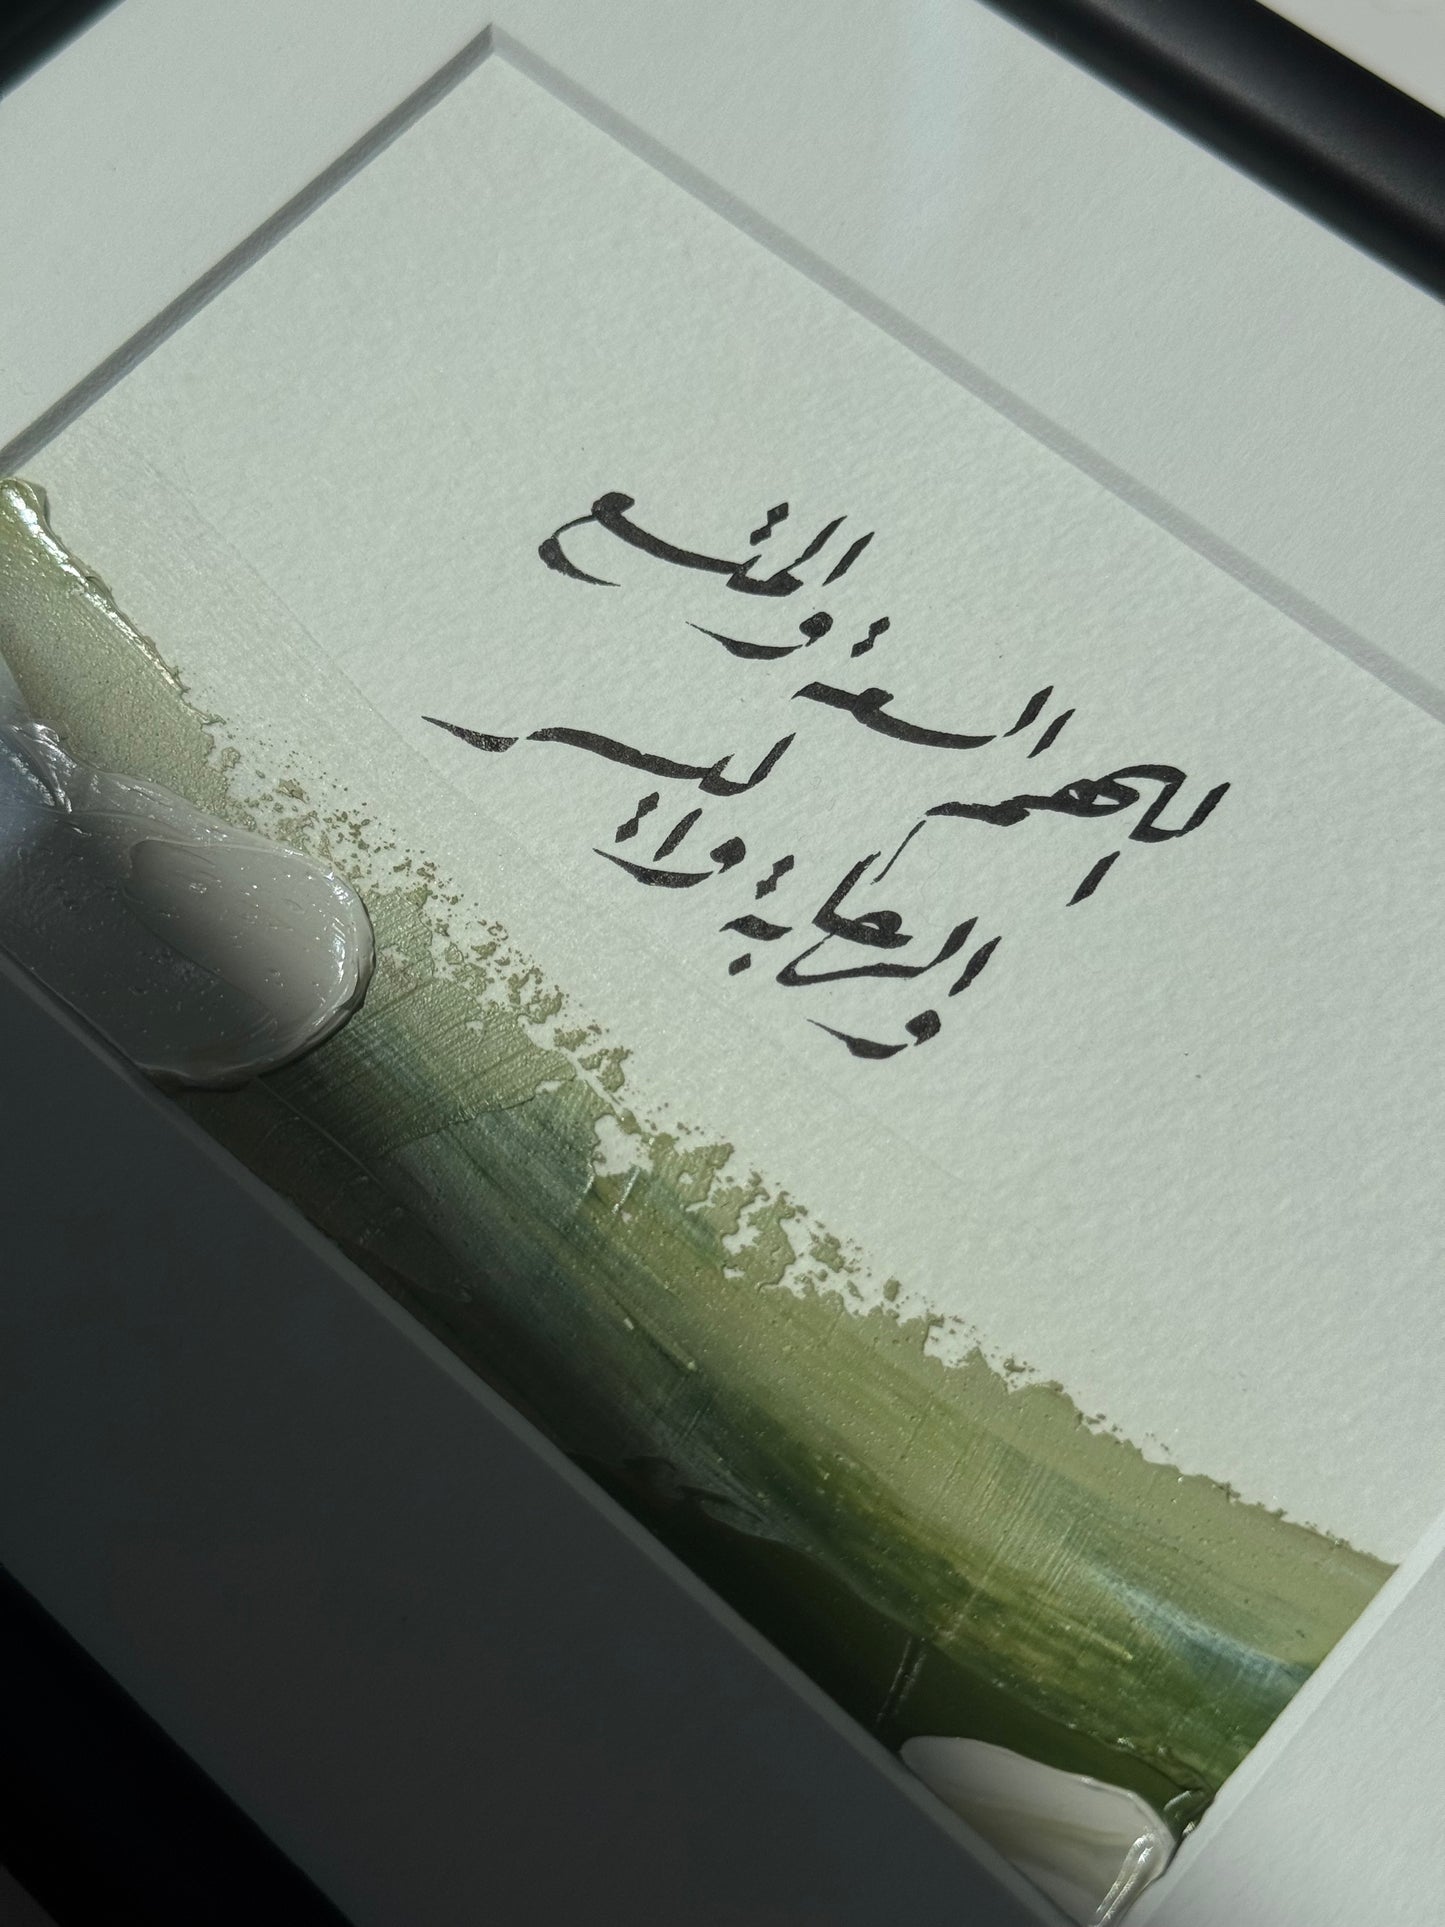 اللهم السعة والمتسع
والرحابة واليسر